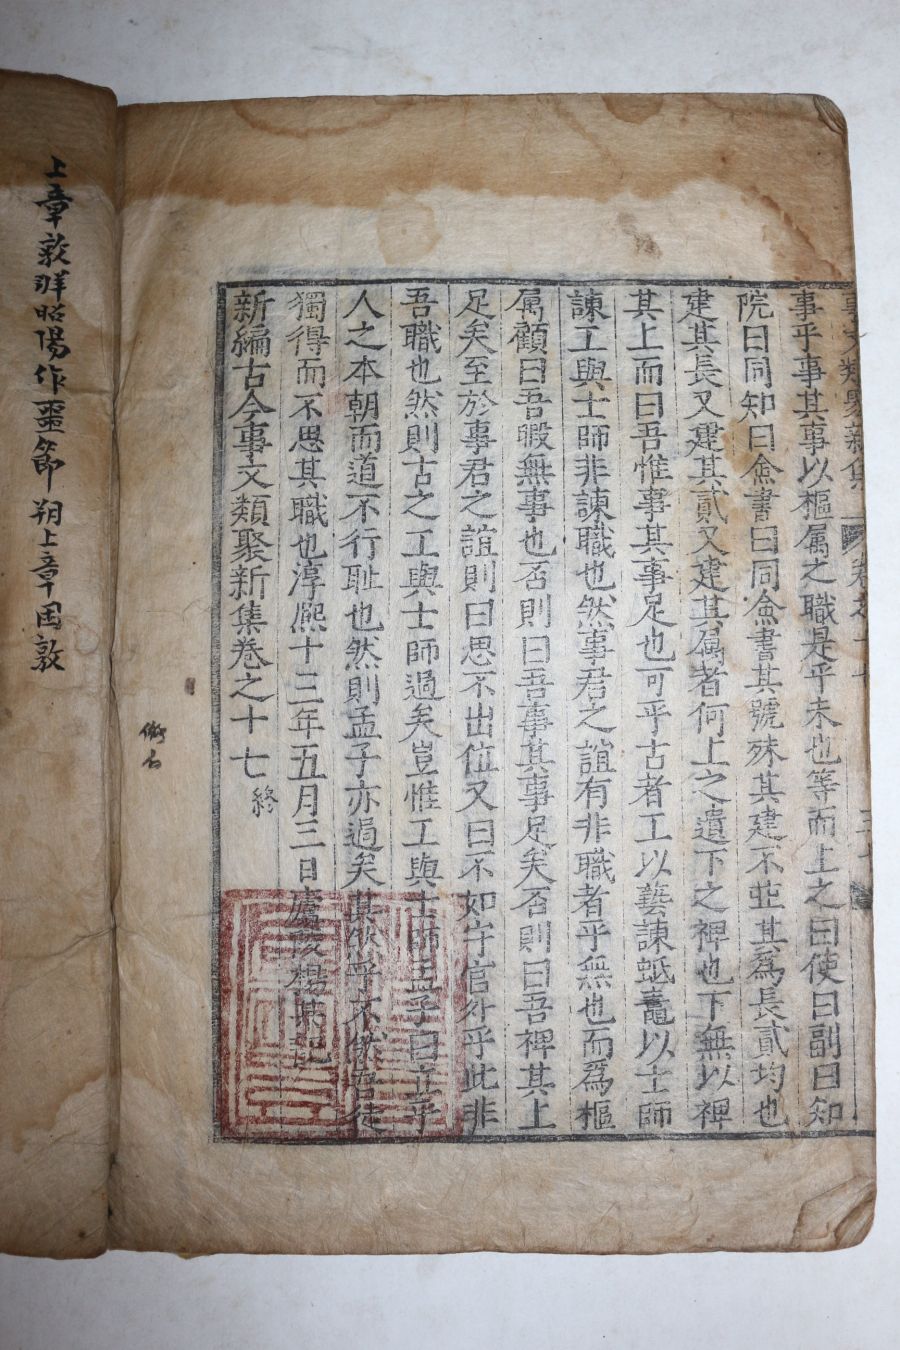 事文類聚新集 卷之十七
事乎事其事以樞属之職是乎未也等而上之曰使曰副曰知
院曰同知曰僉書曰同僉書其號殊其建不並其爲長貳均也
建其長又建其貳又建其属者何上之遺下之裨也下無以裨
其上而曰吾惟事其事足也可乎古者工以藝諫蚳鼃以士師
諫工與士師非諫職也然事君之誼有非職者乎無也而爲樞
属顧曰吾暇無事也否則曰吾事其事足矣否則曰吾裨其上
足矣至於事君之誼則曰思不出位又曰不如守官外乎此非
吾職也然則古之工與士師過矣豈惟工與士師孟子曰立乎
人之本朝而道不行耻也然則孟子亦過矣其然乎不然吾徒
獨得而不思其職也淳熈十三年五月三日廬陵楊某記
新編古今事文類聚新集卷之十七 終
上章敦牂昭陽作噩節朔上章困敦